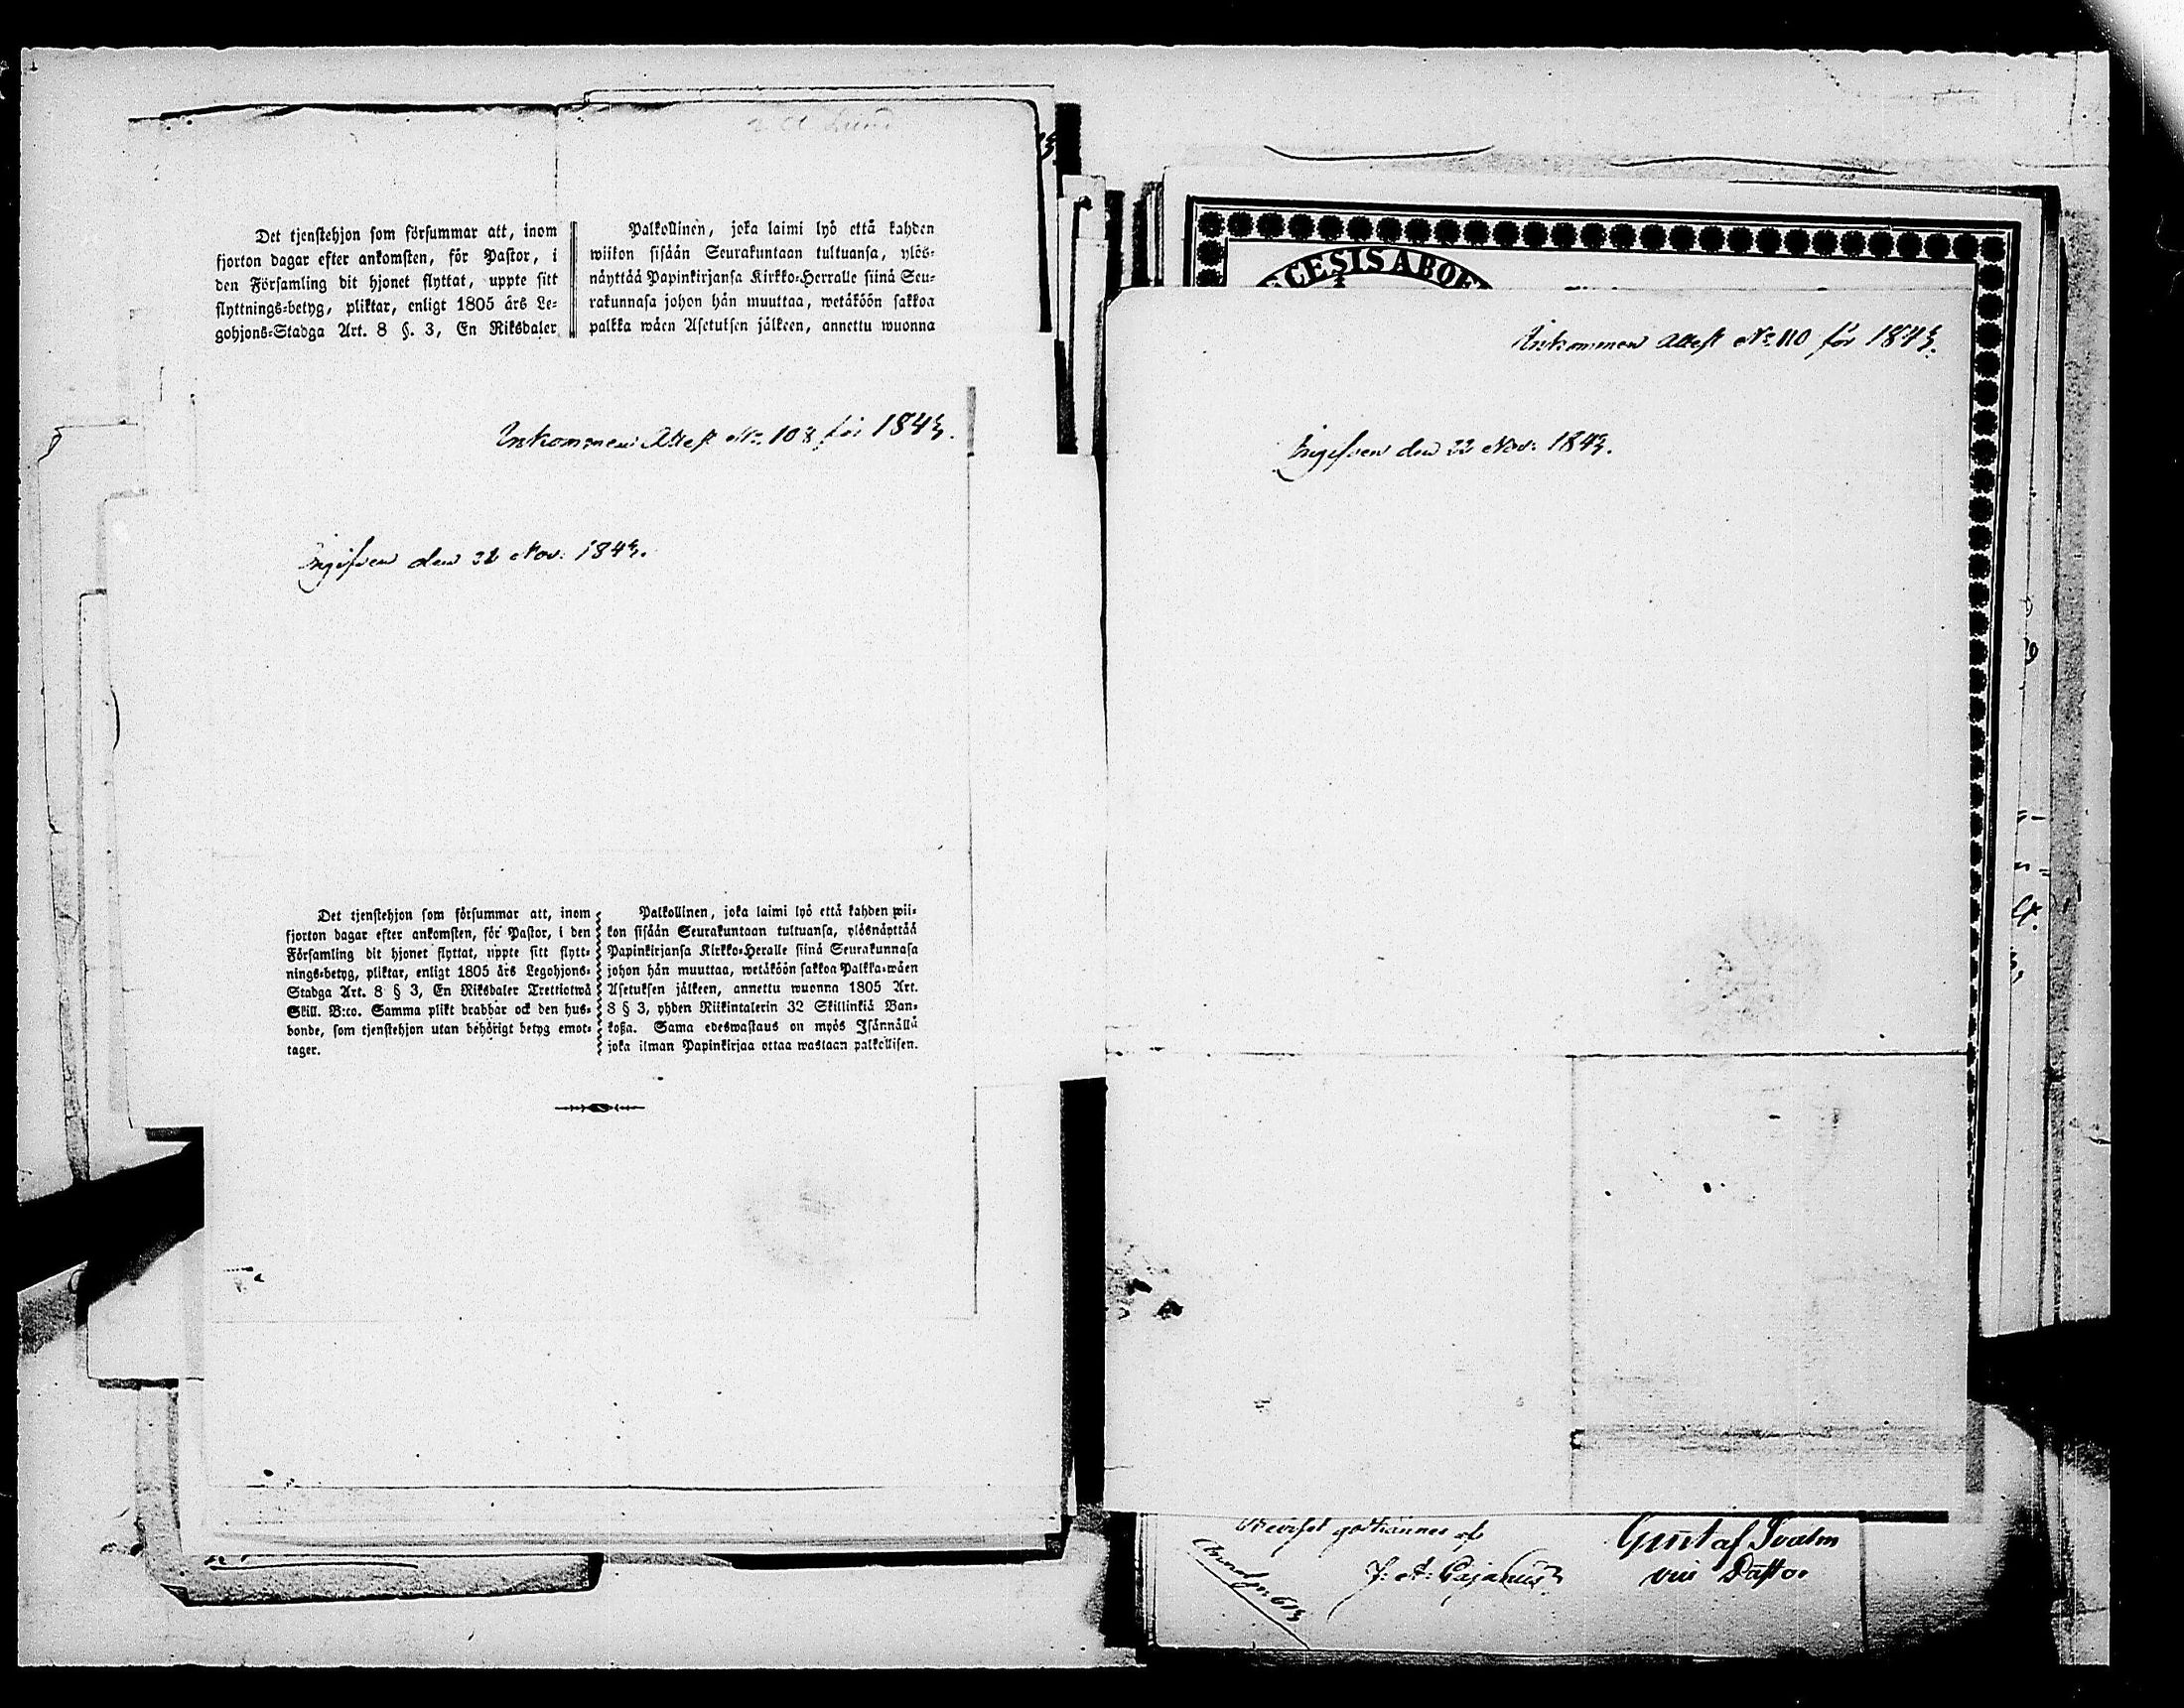 Det tjenstehjon som försummar att, inom
fjorton dagar efter ankomsten, för Pastor, i
den Församling dit hjonet flyttat, uppte sitt
flyttnings-betyg, pliktar, enligt 1805 års Le-
gohjons-Stadga Art. 8 §. 3, En Riksdaler
Palkollinen, joka laimi lyö että kahden
wiikon sisään Seurakuntaan tultuansa, ylös-
näyttää Papinkirjansa Kirkko-Herralle siinä Seu-
rakunnasa johon hän muuttaa, wetäköön sakkoa
palkka wäen Asetuksen jälkeen, annettu wuonna
Inkommen Attest No. 108 för 1843.
Ingifven den 22 Nov. 1843.
Det tjenstehjon som försummar att, inom
fjorton dagar efter ankomsten, för Pastor, i den
Församling dit hjonet flyttat, uppte sitt flytt-
nings-betyg, pliktar, enligt 1805 års Legohjons-
Stadga Art. 8 § 3, En Riksdaler Trettiotwå
Skill. B:co. Samma plikt drabbar ock den hus-
bonde, som tjenstehjon utan behörigt betyg emot-
tager.
Palkollinen, joka laimi lyö että kahden wii-
kon sisään Seurakuntaan tultuansa, ylösnäyttää
Papinkirjansa Kirkko-Heralle siinä Seurakunnasa
johon hän muuttaa, wetäköön sakkoa Palkka-wäen
Asetuksen jälkeen, annettu wuonna 1805 Art.
8 § 3, yhden Riikintalerin 32 Skillinkiä Ban-
koßa. Sama edeswastaus on myös Isännällä
joka ilman Papinkirjaa ottaa wastaan palkollisen.
CESIS ABOE
Inkommen Attest No. 110 för 1843.
Ingifven den 22 Nov. 1843.
godkännes af
J. A. Cajanus
Gustaf
vice Pastor